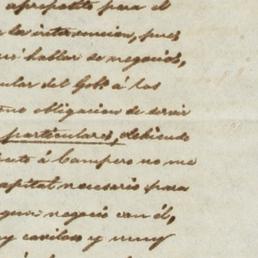 apreposito para el
la intervencion, pues
hablar de negocios,
cular del Gob.º á los
como obligacion de servir
particulares, debiendo
á Campero no me
capital necesario para
negocio con él,
y caviloso y muy